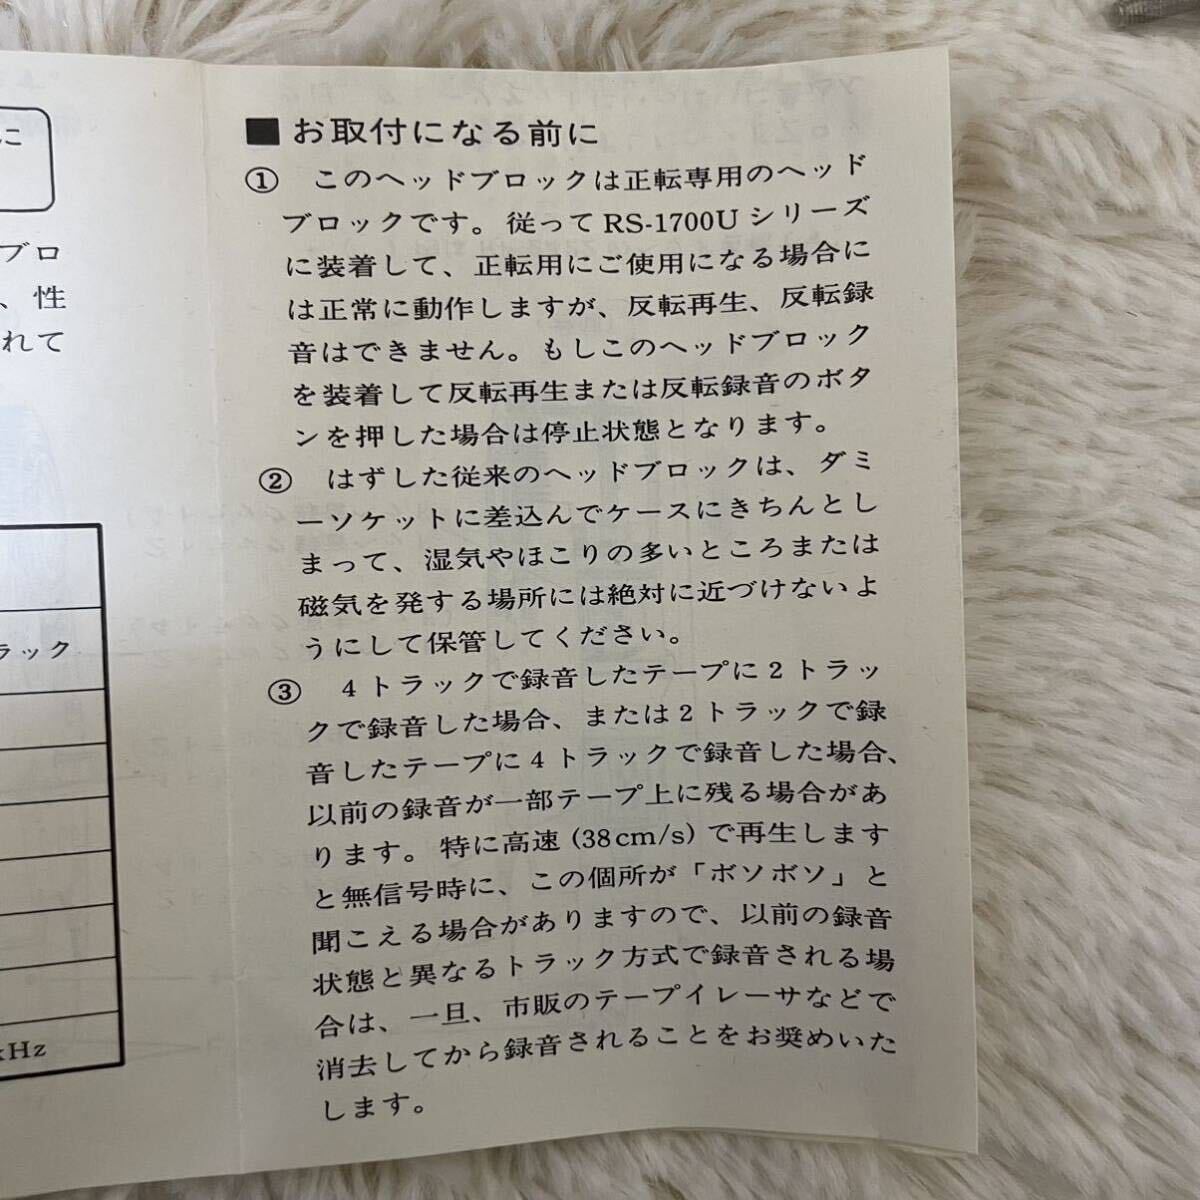 に
ブロ
、性
れて
ラック
kHz
■お取付になる前に
① このヘッドブロックは正転専用のヘッド
ブロックです。従って RS-1700U シリーズ
に装着して、正転用にご使用になる場合に
は正常に動作しますが、反転再生、反転録
音はできません。もしこのヘッドブロック
を装着して反転再生または反転録音のボタ
ンを押した場合は停止状態となります。
② はずした従来のヘッドブロックは、ダミ
ーソケットに差込んでケースにきちんとし
まって、湿気やほこりの多いところまたは
磁気を発する場所には絶対に近づけないよ
うにして保管してください。
③ 4トラックで録音したテープに2トラッ
クで録音した場合、または2トラックで録
音したテープに4トラックで録音した場合、
以前の録音が一部テープ上に残る場合があ
ります。特に高速 (38cm/s) で再生します
と無信号時に、この個所が「ボソボソ」と
聞こえる場合がありますので、以前の録音
状態と異なるトラック方式で録音される場
合は、一旦、市販のテープイレーサなどで
消去してから録音されることをお奨めいた
します。